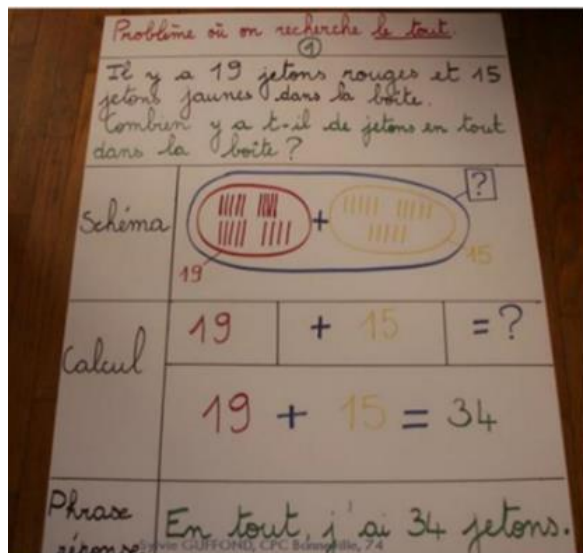 Problème où on recherche le tout.
1
Il y a 19 jetons rouges et 15
jetons jaunes dans la boîte.
Combien y a t-il de jetons en tout
dans la boîte ?
Schéma
+
?
19
15
Calcul
19 + 15 = ?
19 + 15 = 34
Phrase
réponse
En tout, j'ai 34 jetons.
Sylvie GUFFOND, CPC Bonneville, 74